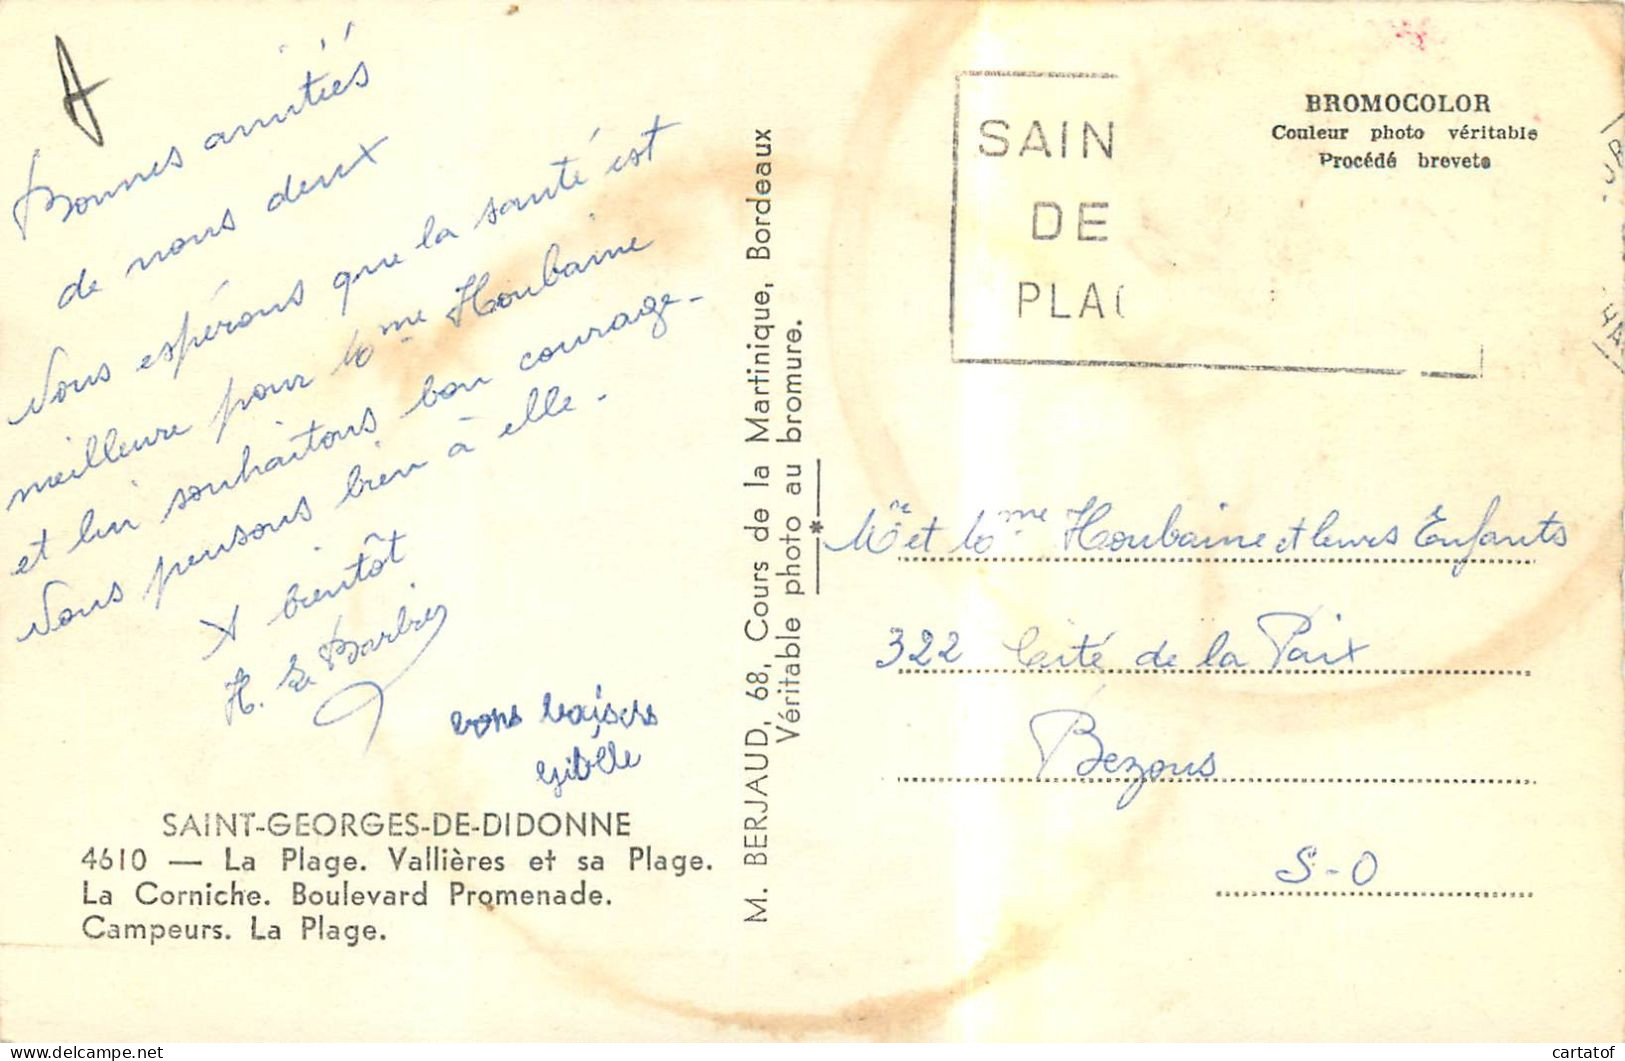 Bonnes amitiés
de nous deux
Nous espérons que la santé est
meilleure pour Mme Houbaine
et lui souhaitons bon courage -
Nous pensons bien à elle -
A bientôt
H. Le Barbier
vons baisers
SAINT-GEORGES-DE-DIDONNE
4610 — La Plage. Vallières et sa Plage.
La Corniche. Boulevard Promenade.
Campeurs. La Plage.
M. BERJAUD, 68, Cours de la Martinique, Bordeaux
Véritable photo au bromure.
SAIN
DE
PLAG
BROMOCOLOR
Couleur photo véritable
Procédé breveté
Mr et Mme Houbaine et leurs Enfants
322 Cité de la Paix
Bezons
S-O
cartatof